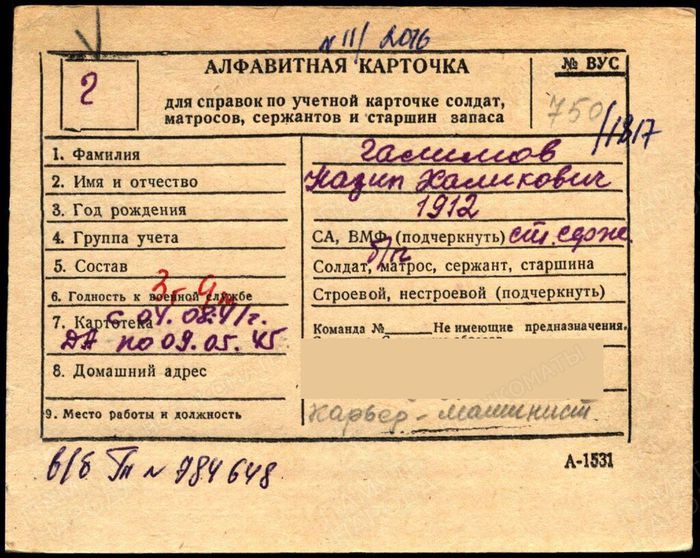 № 11/2016
2
АЛФАВИТНАЯ КАРТОЧКА
для справок по учетной карточке солдат,
матросов, сержантов и старшин запаса
№ ВУС
750
/1817
1. Фамилия
Галимов
2. Имя и отчество
Назип Халикович
3. Год рождения
1912
4. Группа учета
СА, ВМФ (подчеркнуть) ст. серж.
5. Состав
б/п
Солдат, матрос, сержант, старшина
6. Годность к военной службе
Строевой, нестроевой (подчеркнуть)
7. Картотека
с 04.08.41г.
ДА по 09.05.45
Команда № Не имеющие предназначения.
8. Домашний адрес
9. Место работы и должность
Карьер - машинист
в/б Гп № 784648
А-1531